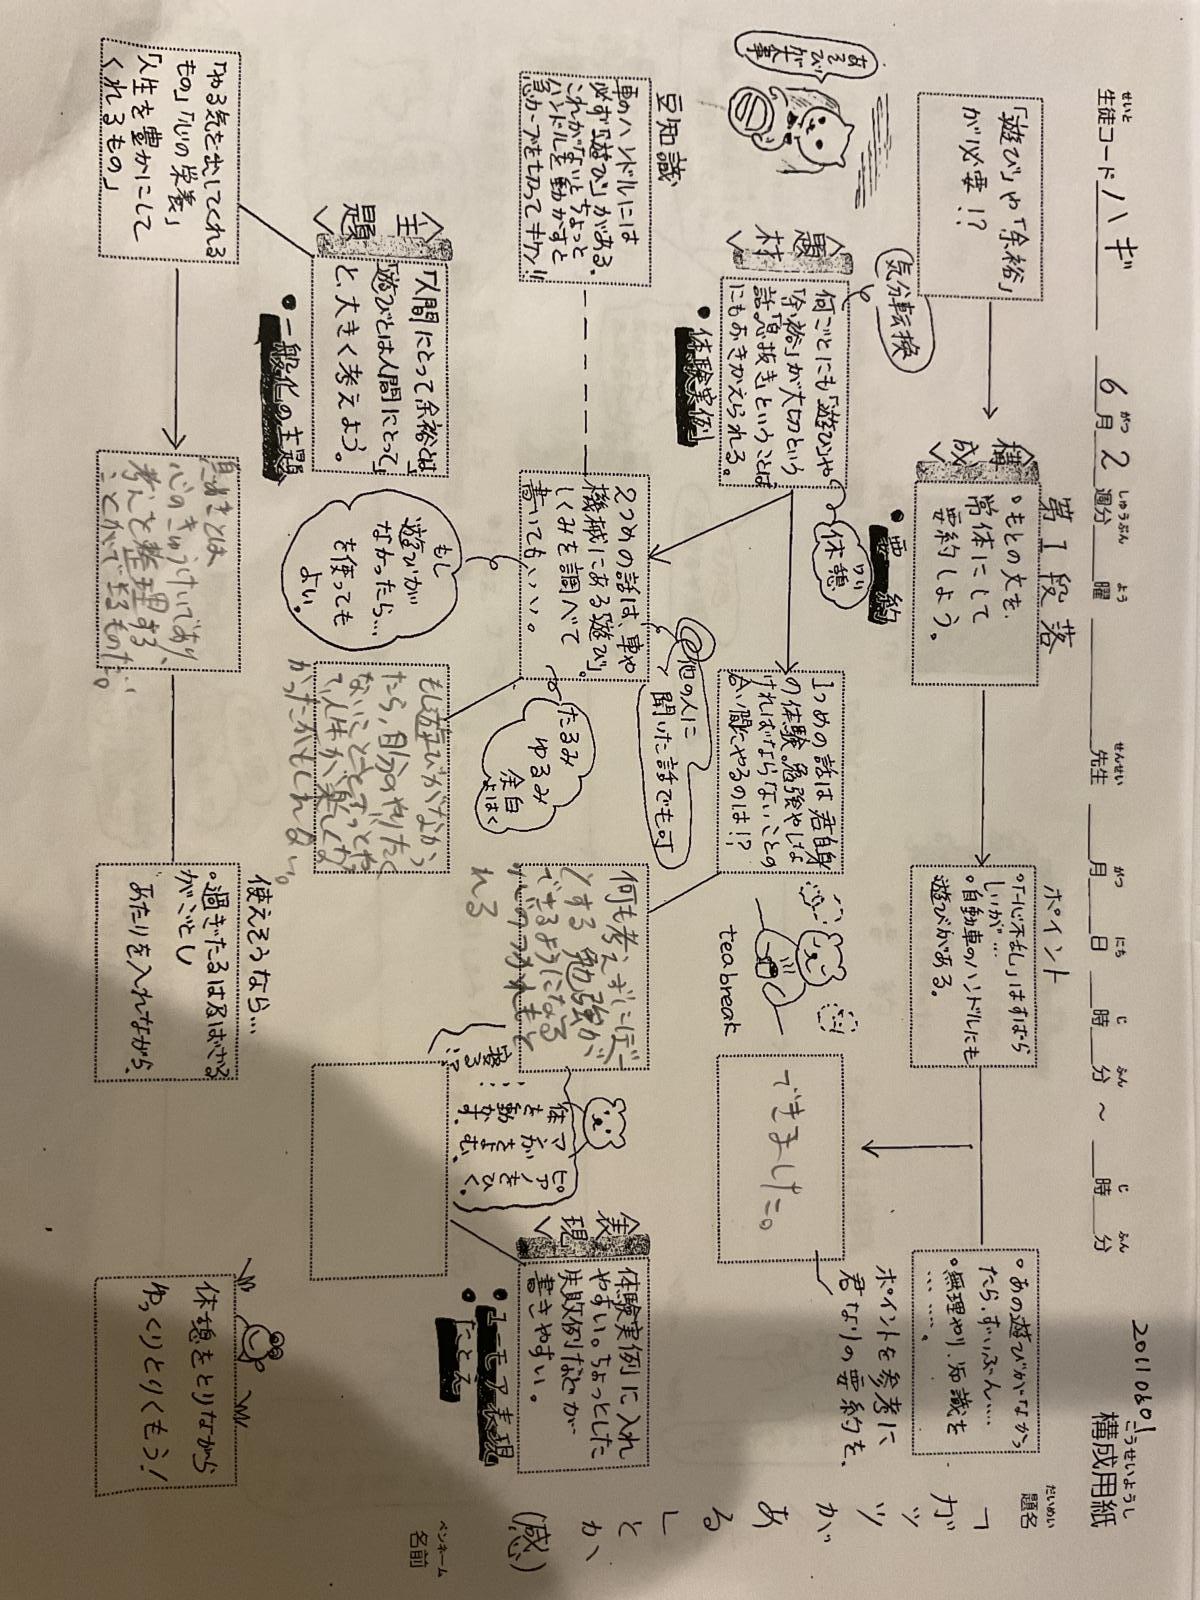 20110601
構成用紙
こうせいようし
生徒コード ハギ 6月2週分 曜 先生 月 日 時 分 ～ 時 分
せいと がつ しゅうぶん よう せんせい がつ にち じ ふん じ ふん
題名
だいめい
「ガッツがあるし
とか(感)
ペンネーム
名前
「遊び」や「余裕」
が必要!?
あそびが
大事
構成
第1段落
。もとの文を、
常体にして
要約しよう。
・要約
ポイント
。「一心不乱」はすばら
しいが…
。自動車のハンドルにも
遊びがある。
。あの遊びがなかっ
たら、ずいぶん……
。無理やり、知識を
………。
できました。
ポイントを参考に
君なりの要約を、
題材
気分転換
何ごとにも「遊び」や
「余裕」が大切という
話。「息抜き」ということば
にもおきかえられる。
・体験実例
休憩
1つめの話は君自身
の体験。勉強やしな
ければならないことの
合い間にやるのは!?
tea break
豆知識
車のハンドルには
必ず「遊び」がある。
これがないと、ちょっと
ハンドルを動かすと
急カーブを切ってキケン!!
2つめの話は、車や
機械にある「遊び」。
しくみを調べて
書いてもいい。
他の人に
聞いた話でも可
たるみ
ゆるみ
余白
よはく
もし
遊びが
なかったら…
を使っても
よい。
何も考えずにぼーっ
とする 勉強が
できるようになる
心のつかれもと
れる
寝る!?
体を動かす。
マンガをよむ。
ピアノをひく。
もし遊びがなかっ
たら、自分のやりたく
ないことをずっとや
って人生が楽しくな
かったかもしれない。
表現
体験実例に入れ
やすい。ちょっとした
失敗例などが
書きやすい。
・ユーモア表現
・たとえ
主題
「人間にとって余裕とは」
「遊びとは人間にとって」
と、大きく考えよう。
・一般化の主題
「やる気を出してくれる
もの」「心の栄養」
「人生を豊かにして
くれるもの」
息ぬきとは
心のきゅうけいであり、
考えを整理する
ことができるものだ。
使えそうなら…
。過ぎたるは及ばざる
がごとし
あたりを入れながら、
休憩をとりながら
ゆっくりとりくもう!